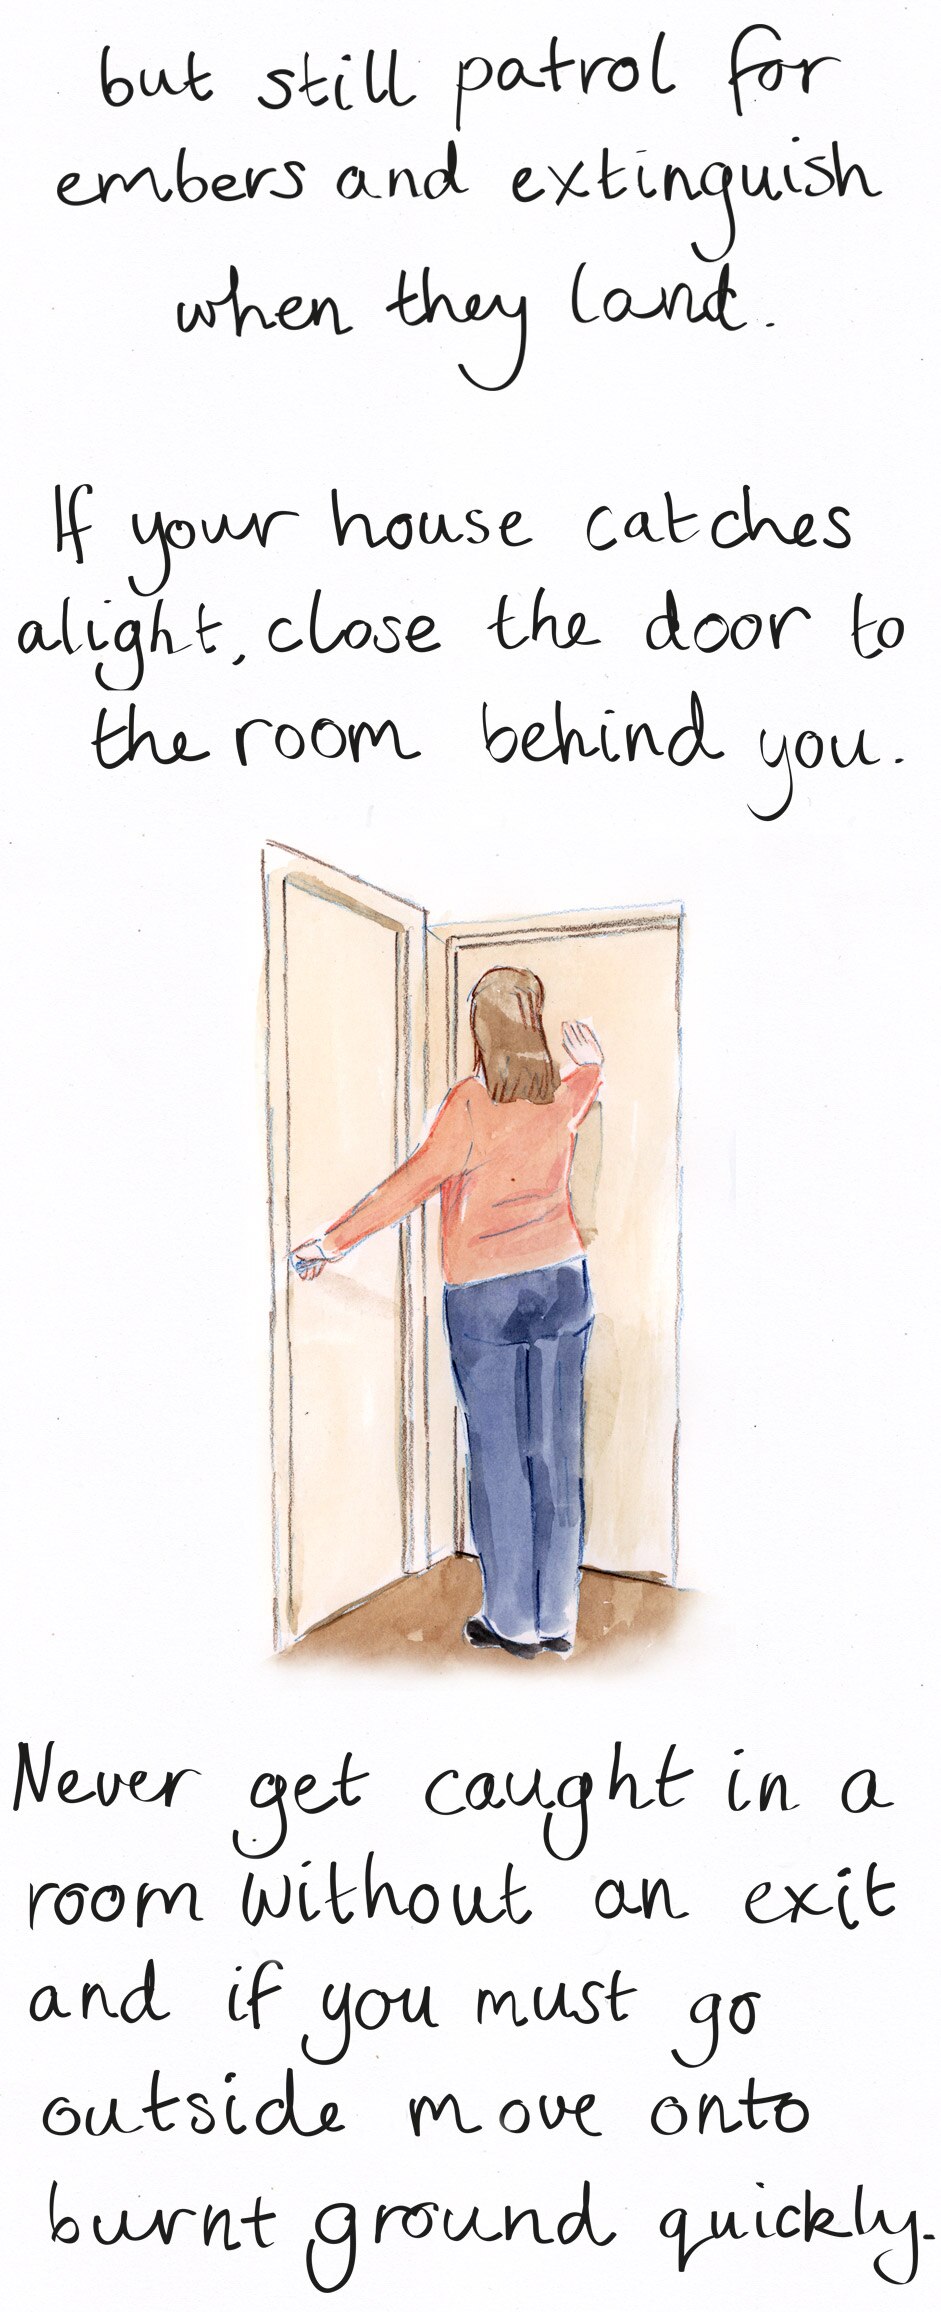 but still patrol for
embers and extinguish
when they land.
If your house catches
alight, close the door to
the room behind you.
Never get caught in a
room without an exit
and if you must go
outside move onto
burnt ground quickly.